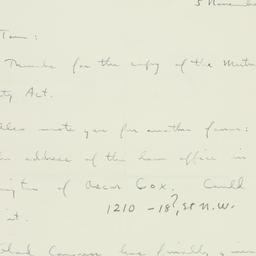 5 Novembe
Tom:
Thanks for the copy of the Mutu
ty Act.
also wrote you for another favor:
the address of the law office in
ington of Oscar Cox. Could
1210 - 18?, St N.W.
it.
Congress has finally given